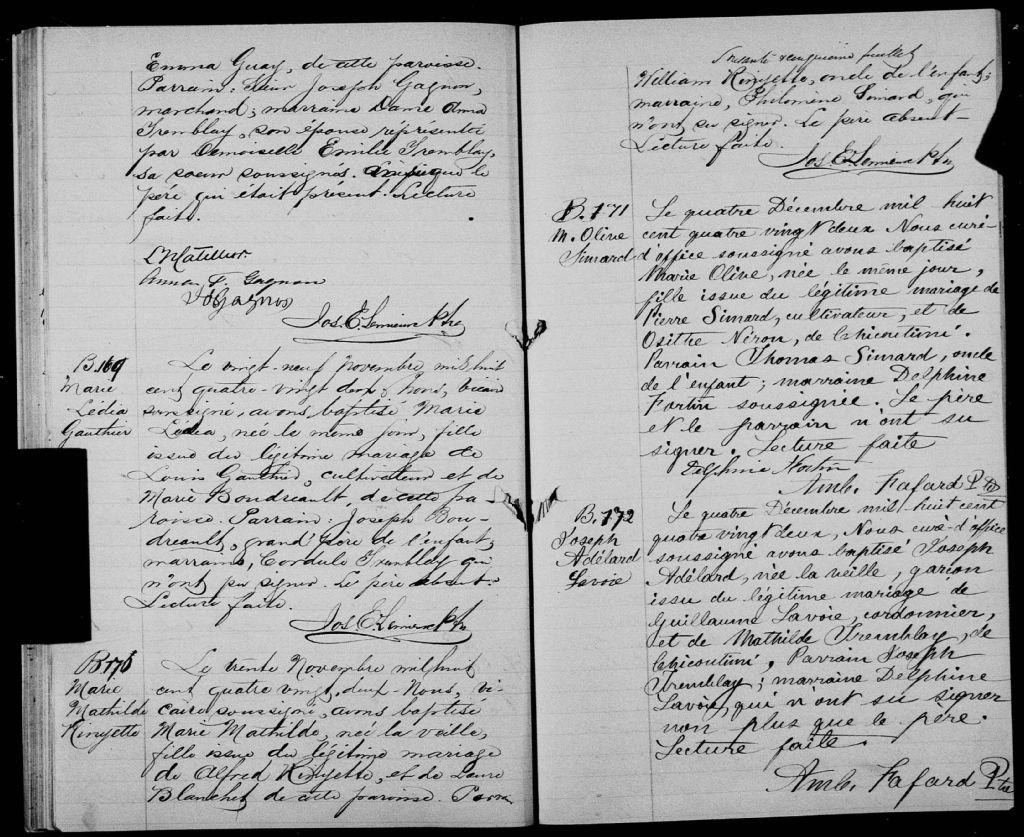 Emma Guay, de cette paroisse.
Parrain: Sieur Joseph Gagnon,
marchand; marraine Dame Anna
Tremblay, son épouse réprésentée
par Demoiselle Emilie Tremblay,
sa soeur soussignés. ainsi que le
père qui était présent. Lecture
faite.
Anna T. Gagnon
J O Gagnon
Jos. E. Lemieux Ptre
B. 169
Marie
Lédia
Gauthier
Le vingt-neuf novembre mil huit
cent quatre-vingt deux, Nous, vicaire
soussigné, avons baptisé Marie
Lédea, née le même jour, fille
issue du légitime mariage de
Louis Gauthier, cultivateur et de
Marie Boudreault, de cette pa-
roisse. Parrain: Joseph Bou-
dreault, grand'père de l'enfant;
marraine, Cordule Tremblay qui
n'ont pu signer. Le père absent.
Lecture faite.
Jos. E. Lemieux Ptre
B. 170
Marie
Mathilde
Rinfette
Le trente Novembre mil huit
cent quatre vingt, deux Nous, vi-
caire soussigné, avons baptisé
Marie Mathilde, née la veille,
fille issue du légitime mariage
de Alfred Rinfette, et de Laure
Blanchet de cette paroisse. Parrain
Soixante feuillet
William Rinfette, oncle de l'enfant;
marraine, Philomène Simard, qui
n'ont su signer. Le père absent-
Lecture faite.
Jos. E. Lemieux Ptre
B. 171
M. Olive
Simard
Le quatre Décembre mil huit
cent quatre vingt deux Nous curé-
d'office soussigné avons baptisé
Marie Olive, née le même jour,
fille issue du légitime mariage de
Pierre Simard, cultivateur, et de
Osithe Néron, de Chicoutimi.
Parrain Thomas Simard, oncle
de l'enfant; marraine Delphine
Fortin soussignée. Le père
et le parrain n'ont su
signer. Lecture faite
Delphine Fortin
Amb. Fafard Ptre
B. 172
Joseph
Adélard
Savoie
Le quatre Décembre mil huit cent
quatre vingt deux, Nous curé-d'office
soussigné avons baptisé Joseph
Adélard, née la veille, garçon
issu du légitime mariage de
Guillaume Savoie, cordonnier,
et de Mathilde Tremblay, de
Chicoutimi, Parrain Joseph
Tremblay; marraine Delphine
Savoie, qui n'ont su signer
non plus que le père.
Lecture faite.
Amb. Fafard Ptre